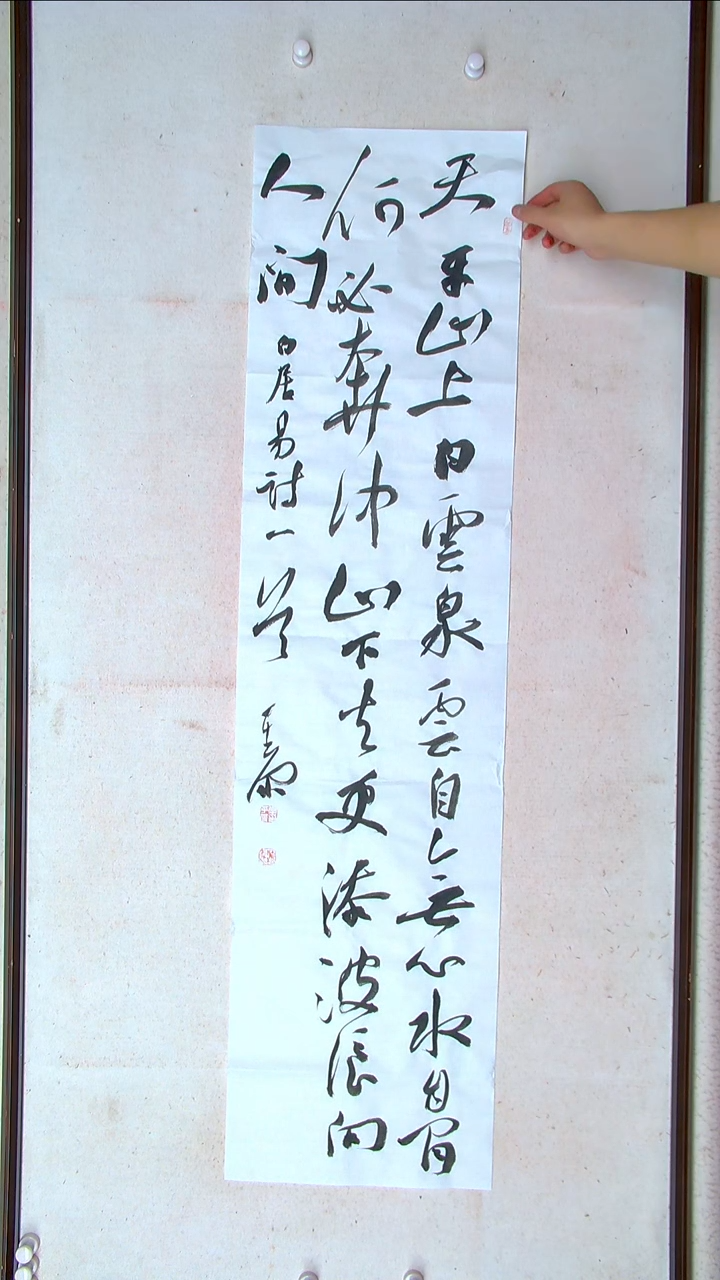 天平山上白雲泉雲自無心水自閒
何必奔冲山下去更添波浪向
人間 白居易詩一首